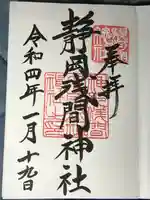 奉拝
静岡浅間神社
令和四年一月十九日